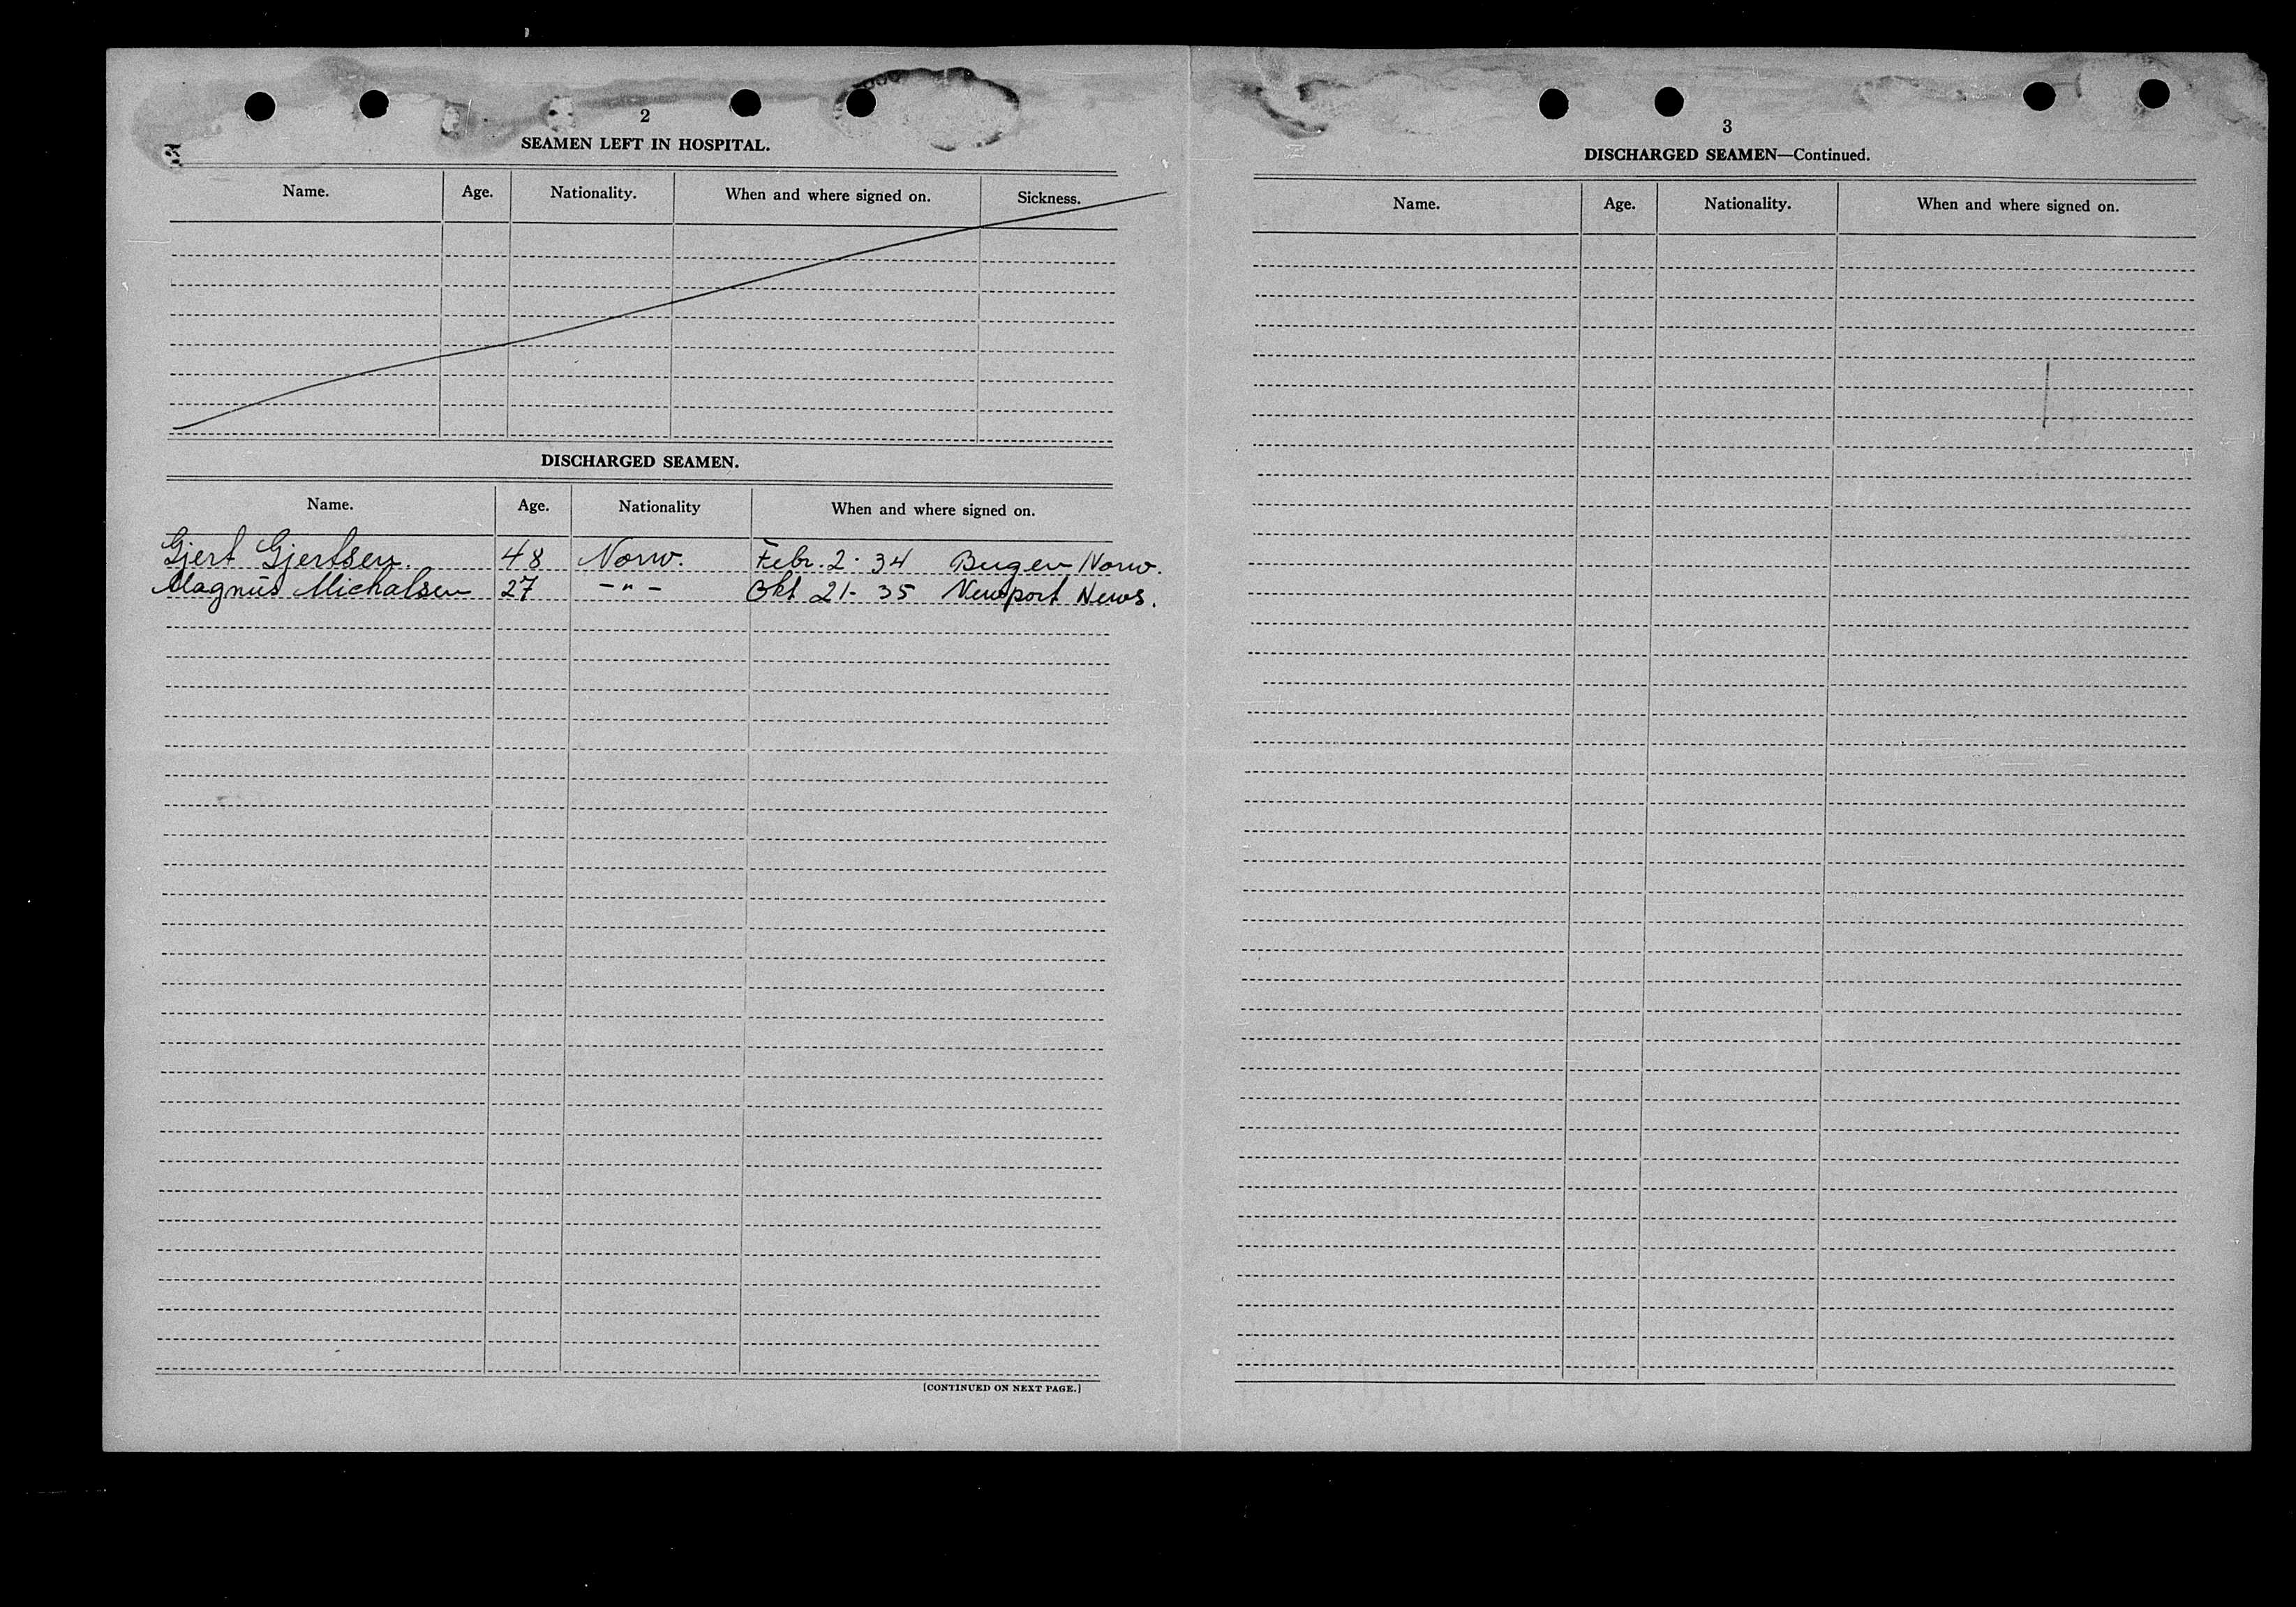 2
SEAMEN LEFT IN HOSPITAL.
Name. Age. Nationality. When and where signed on. Sickness.
DISCHARGED SEAMEN.
Name. Age. Nationality When and where signed on.
Gjert Gjertsen. 48 Norw. Febr. 2. 34 Bergen Norw.
Magnus Michalsen 27 - " - Okt 21. 35 Newport News.
[CONTINUED ON NEXT PAGE.]
3
DISCHARGED SEAMEN—Continued.
Name. Age. Nationality. When and where signed on.